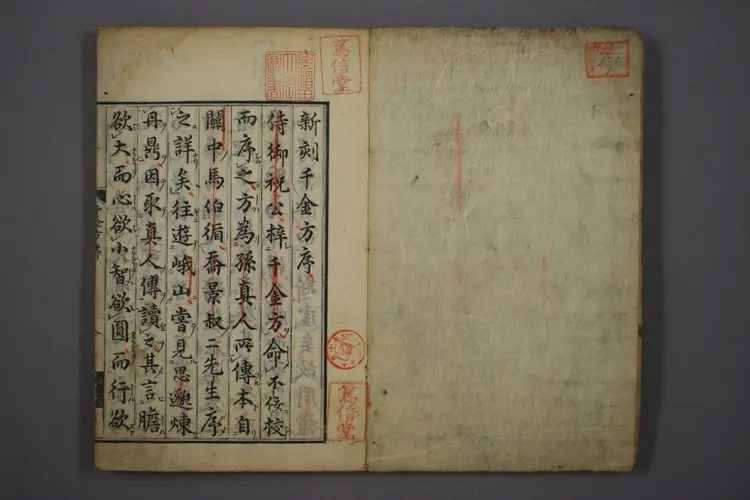 新刻千金方序
侍御祝公梓千金方命不佞校
而序之方為孫真人所傳本自
關中馬伯循喬景叔二先生序
之詳矣往遊峨山嘗見思邈煉
丹鼎因取真人傳讀之其言膽
欲大而心欲小智欲圓而行欲
篤信堂
篤信堂